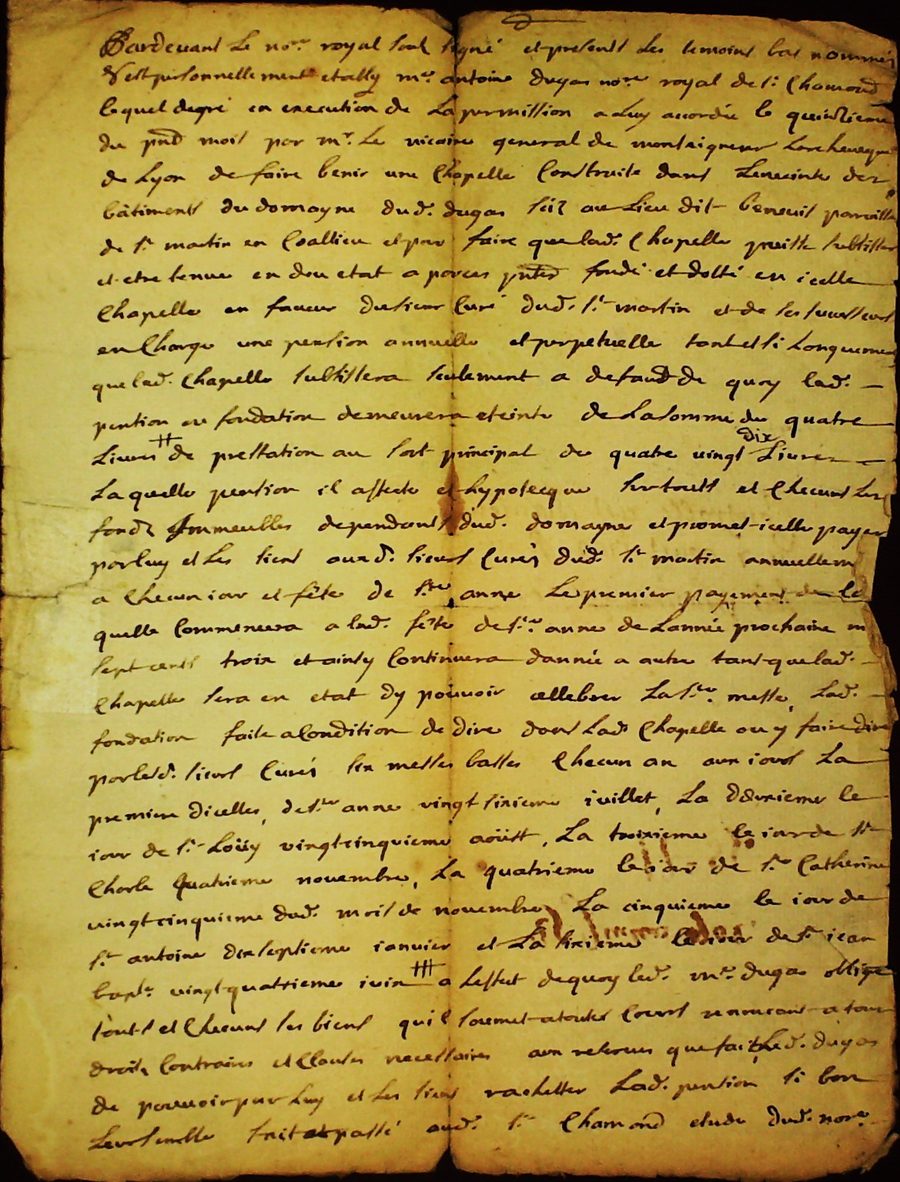 Pardevant Le nore. royal soub signé et presents Les temoins bas nommés
s'est personnellement etably mr. antoine dugas nore. royal de st. Chamond
lequel degré en execution de La permission a Luy accordée le quinzieme
du pnt mois par mr. Le vicaire general de monseigneur Larcheveque
de Lyon de faire benir une Chapelle Construite dans Lenceinte des
bâtiments du domayne dud. dugas sciz au Lieu dit beneuil parroisse
de st. martin en Coallieu et pour faire que lad. Chapelle puisse subsister
et etre tenue en deu etat a par ces pntes fondé et dotté en icelle
Chapelle en faveur du sieur Curé dud. st. martin et de ses successeurs
en Charge une pension annuelle et perpetuelle tant et si Longuement
que lad. Chapelle subsistera seulement a defaud de quoy lad.
pention ou fondation demeurera eteinte de La somme de quatre
Livres # de prestation au sort principal de quatre vingt dix Livres
Laquelle pension il affecte et hypotecque sur touts et Checuns Les
fonds Immeubles dependants dud. domayne et promet icelle payer
par luy et Les siens auxd. sieurs Curés dud. st. martin annuellement
a Checun iour et fête de ste. anne Le premier payement de La
quelle Commencera a lad. feste de ste. anne de L'année prochaine m
sept cents trois et ainsy Continuera d'année a autre tant que lad.
Chapelle sera en etat d'y pouvoir cellebrer La ste. messe, Lad.
fondation faite a Condition de dire dans Lad. Chapelle ou y faire dire
par lesd. sieurs Curés six messes basses Checun an aux iours La
premiere dicelles, de ste. anne vingt sixieme iuillet, La deuxieme le
iour de st. Loüy vingt cinquieme aoüst, La troisieme le iour de st.
Charle quatrieme novembre, La quatrieme le iour de ste. Catherine
vingt cinquieme dud. mois de novembre La cinquieme le iour de
st. antoine dix septieme ianvier et La sixieme le iour de st. iean
bapte. vingt quatrieme iuin # a Leffect de quoy led. mr. dugas oblige
touts et Checuns ses biens qu'il soumet a toutes Cours renoncant a tous
droits Contraires et Clauses necessaires aux reserves que fait Led. dugas
de pouvoir par Luy et Les siens rachetter Lad. pention si bon
Leur semble fait et passé aud. st. Chamond etude dud. nore.